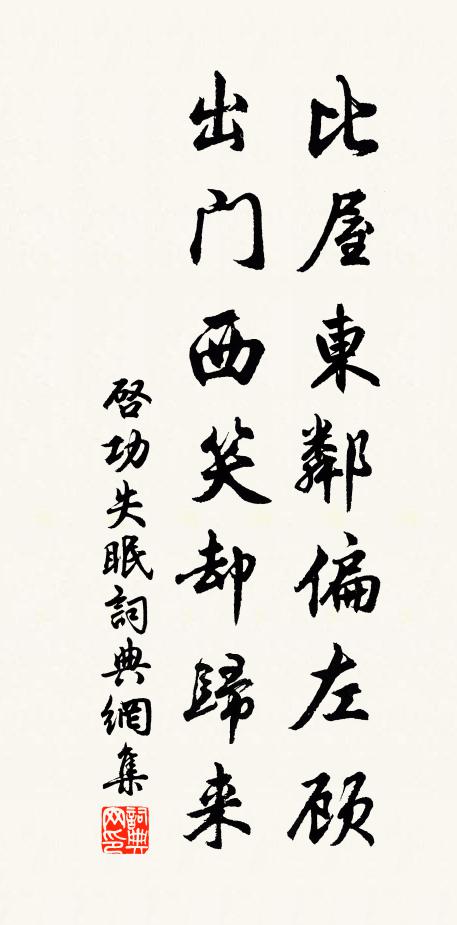 比屋東鄰偏左顾
出门西笑却歸来
启功失眠詞典網集
詞典网印